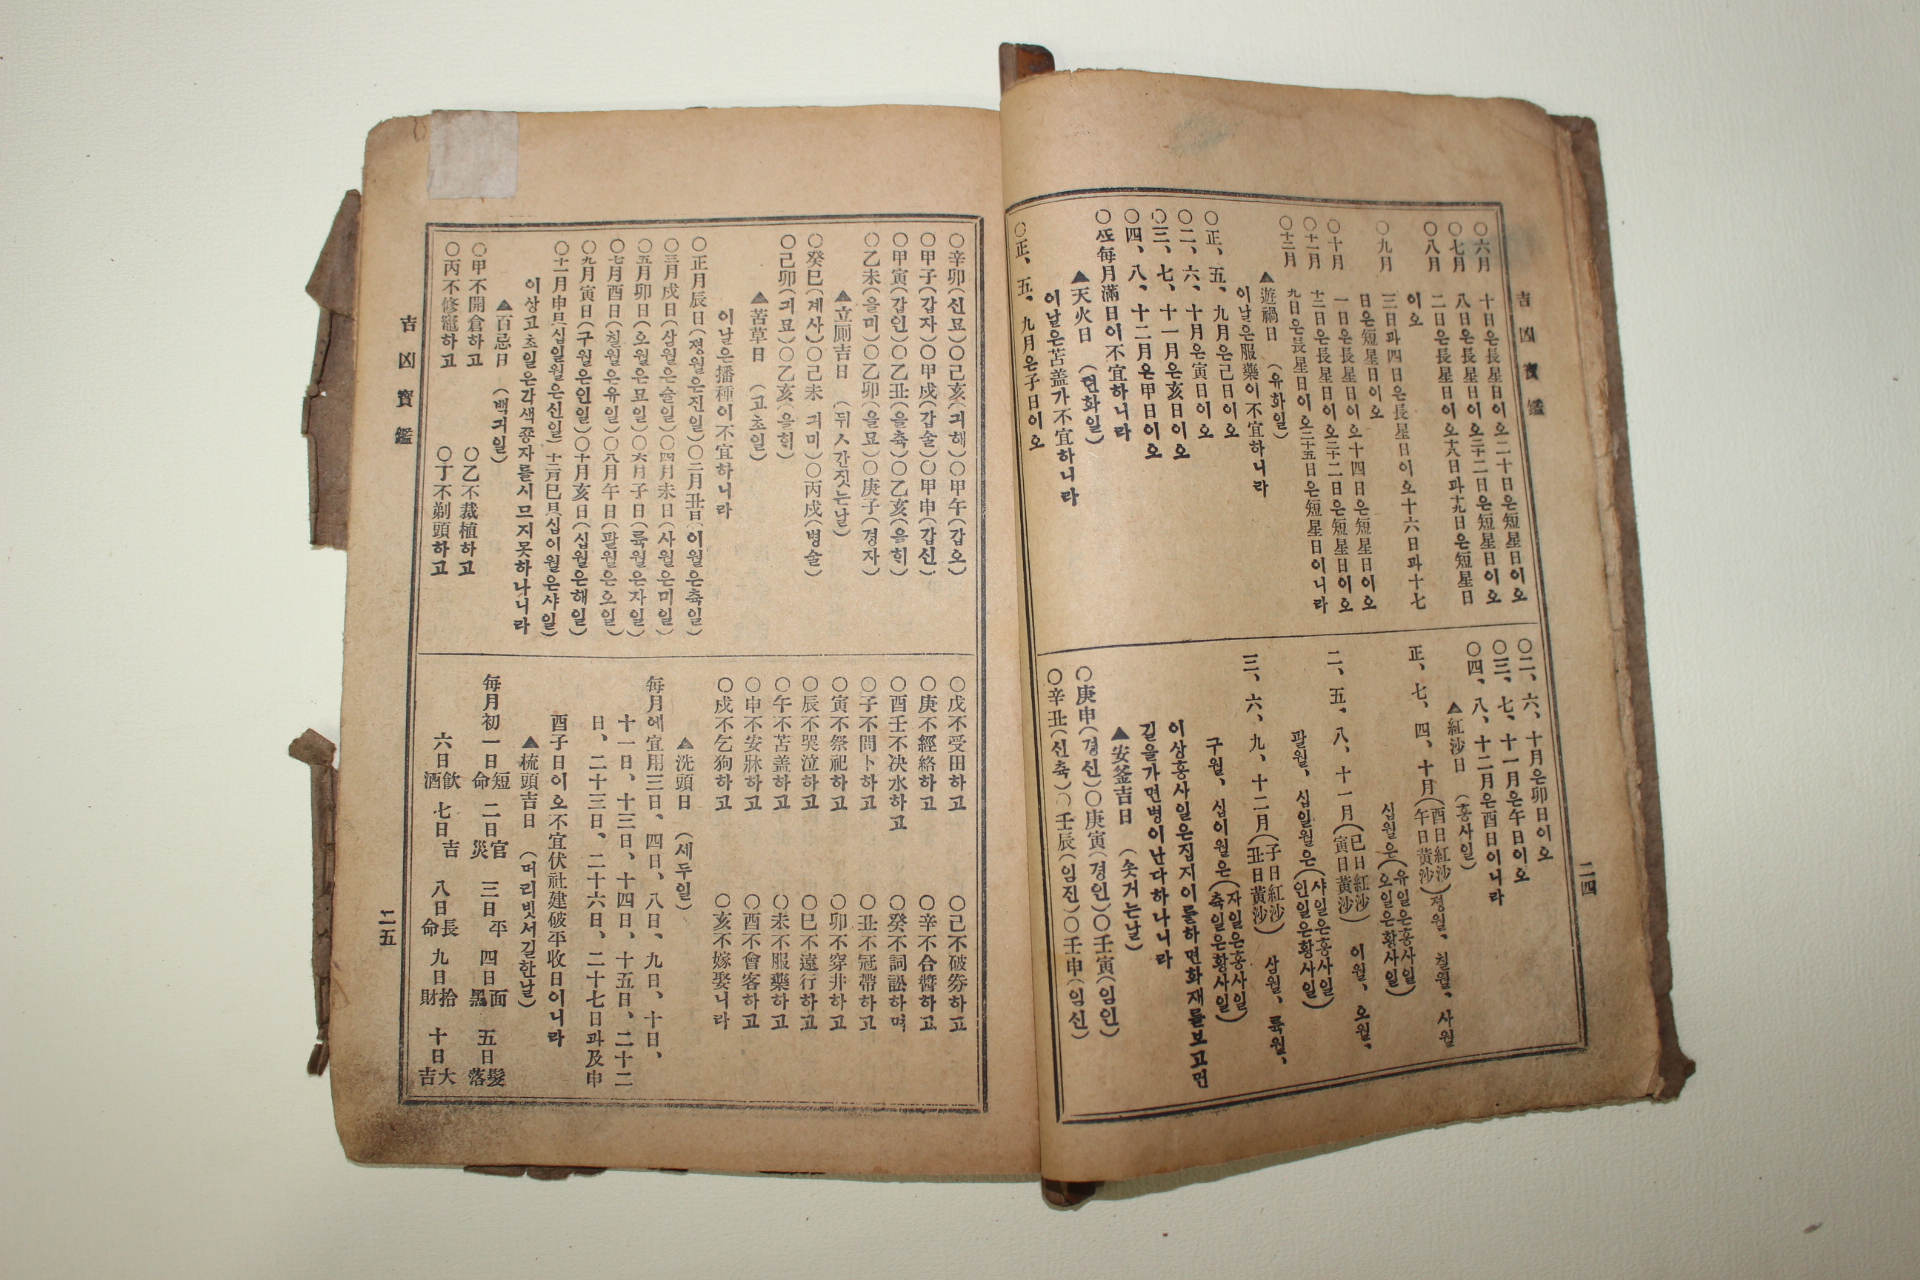 吉凶寶鑑
二四
○六月 十日은長星日이오二十日은短星日이오
○七月 八日은長星日이오二十二日은短星日이오
○八月 二日은長星日이오十八日과十九日은短星日
이오
○九月 三日과四日은長星日이오十六日과十七
日은短星日이오
○十月 一日은長星日이오十四日은短星日이오
○十一月 十二日은長星日이오二十二日은短星日이오
○十二月 九日은長星日이오二十五日은短星日이니라
▲遊禍日 (유화일)
이날은服藥이不宜하니라
○正、五、九月은己日이오
○二、六、十月은寅日이오
○三、七、十一月은亥日이오
○四、八、十二月은甲日이오
○또每月滿日이不宜하니라
▲天火日 (텬화일)
이날은苫盖가不宜하니라
○正、五、九月은子日이오
○二、六、十月은卯日이오
○三、七、十一月은午日이오
○四、八、十二月은酉日이니라
▲紅沙日 (홍사일)
正、七、四、十月(酉日紅沙 午日黃沙)정월、칠월、사월
십월은(유일은홍사일 오일은황사일)
二、五、八、十一月(巳日紅沙 寅日黃沙) 이월、오월、
팔월、십일월은(샤일은홍사일 인일은황사일)
三、六、九、十二月(子日紅沙 丑日黃沙) 삼월、륙월、
구월、십이월은(자일은홍사일 축일은황사일)
이상홍사일은집지이를하면화재를보고먼
길을가면병이난다하나니라
▲安釜吉日 (솟거는날)
○庚申(경신)○庚寅(경인)○壬寅(임인)
○辛丑(신축)○壬辰(임진)○壬申(임신)
○辛卯(신묘)○己亥(긔해)○甲午(갑오)
○甲子(갑자)○甲戌(갑술)○甲申(갑신)
○甲寅(갑인)○乙丑(을축)○乙亥(을히)
○乙未(을미)○乙卯(을묘)○庚子(경자)
▲立厠吉日 (뒤ㅅ간짓는날)
○癸巳(계사)○己未 긔미)○丙戌(병술)
○己卯(긔묘)○乙亥(을히)
▲苦草日 (고초일)
이날은播種이不宜하니라
○正月辰日(정월은진일)○二月丑日(이월은축일)
○三月戌日(삼월은술일)○四月未日(사월은미일)
○五月卯日(오월은묘일)○六月子日(륙월은자일)
○七月酉日(칠월은유일)○八月午日(팔월은오일)
○九月寅日(구월은인일)○十月亥日(십월은해일)
○十一月申日(십일월은신일) 十二月巳日(십이월은사일)
이상고초일은각색종자를시므지못하나니라
▲百忌日 (백긔일)
○甲不開倉하고 ○乙不裁植하고
○丙不修竈하고 ○丁不剃頭하고
○戊不受田하고 ○己不破劵하고
○庚不經絡하고 ○辛不合醬하고
○酉壬不决水하고 ○癸不詞訟하며
○子不問卜하고 ○丑不冠帶하고
○寅不祭祀하고 ○卯不穿井하고
○辰不哭泣하고 ○巳不遠行하고
○午不苫盖하고 ○未不服藥하고
○申不安牀하고 ○酉不會客하고
○戌不乞狗하고 ○亥不嫁娶니라
▲洗頭日 (세두일)
每月에宜用三日、四日、八日、九日、十日、
十一日、十三日、十四日、十五日、二十二
日、二十三日、二十六日、二十七日과及申
酉子日이오不宜伏社建破平收日이니라
▲梳頭吉日 (머리빗서길한날)
每月初一日短命 二日官災 三日平 四日面黑 五日髮落
六日飮酒 七日吉 八日長命 九日拾財 十日大吉
吉凶寶鑑
二五